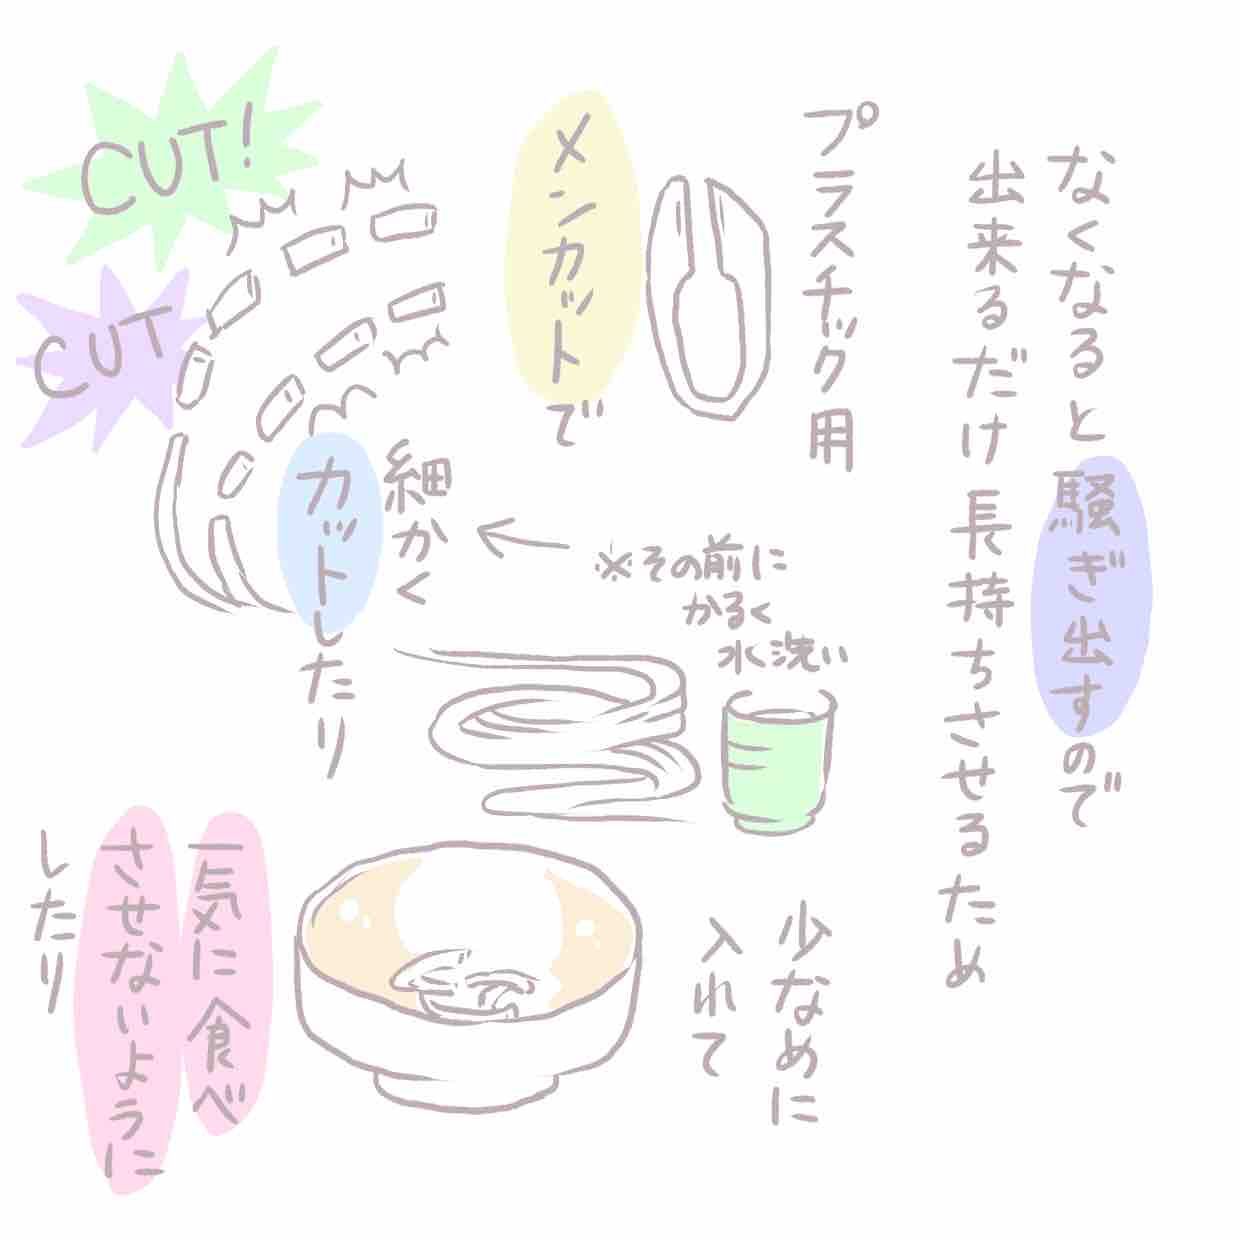 なくなると騒ぎ出すので
出来るだけ長持ちさせるため
プラスチック用
メンカットで
細かく
カットしたり
CUT!
CUT
※その前に
かるく
水洗い
少なめに
入れて
一気に食べ
させないように
したり